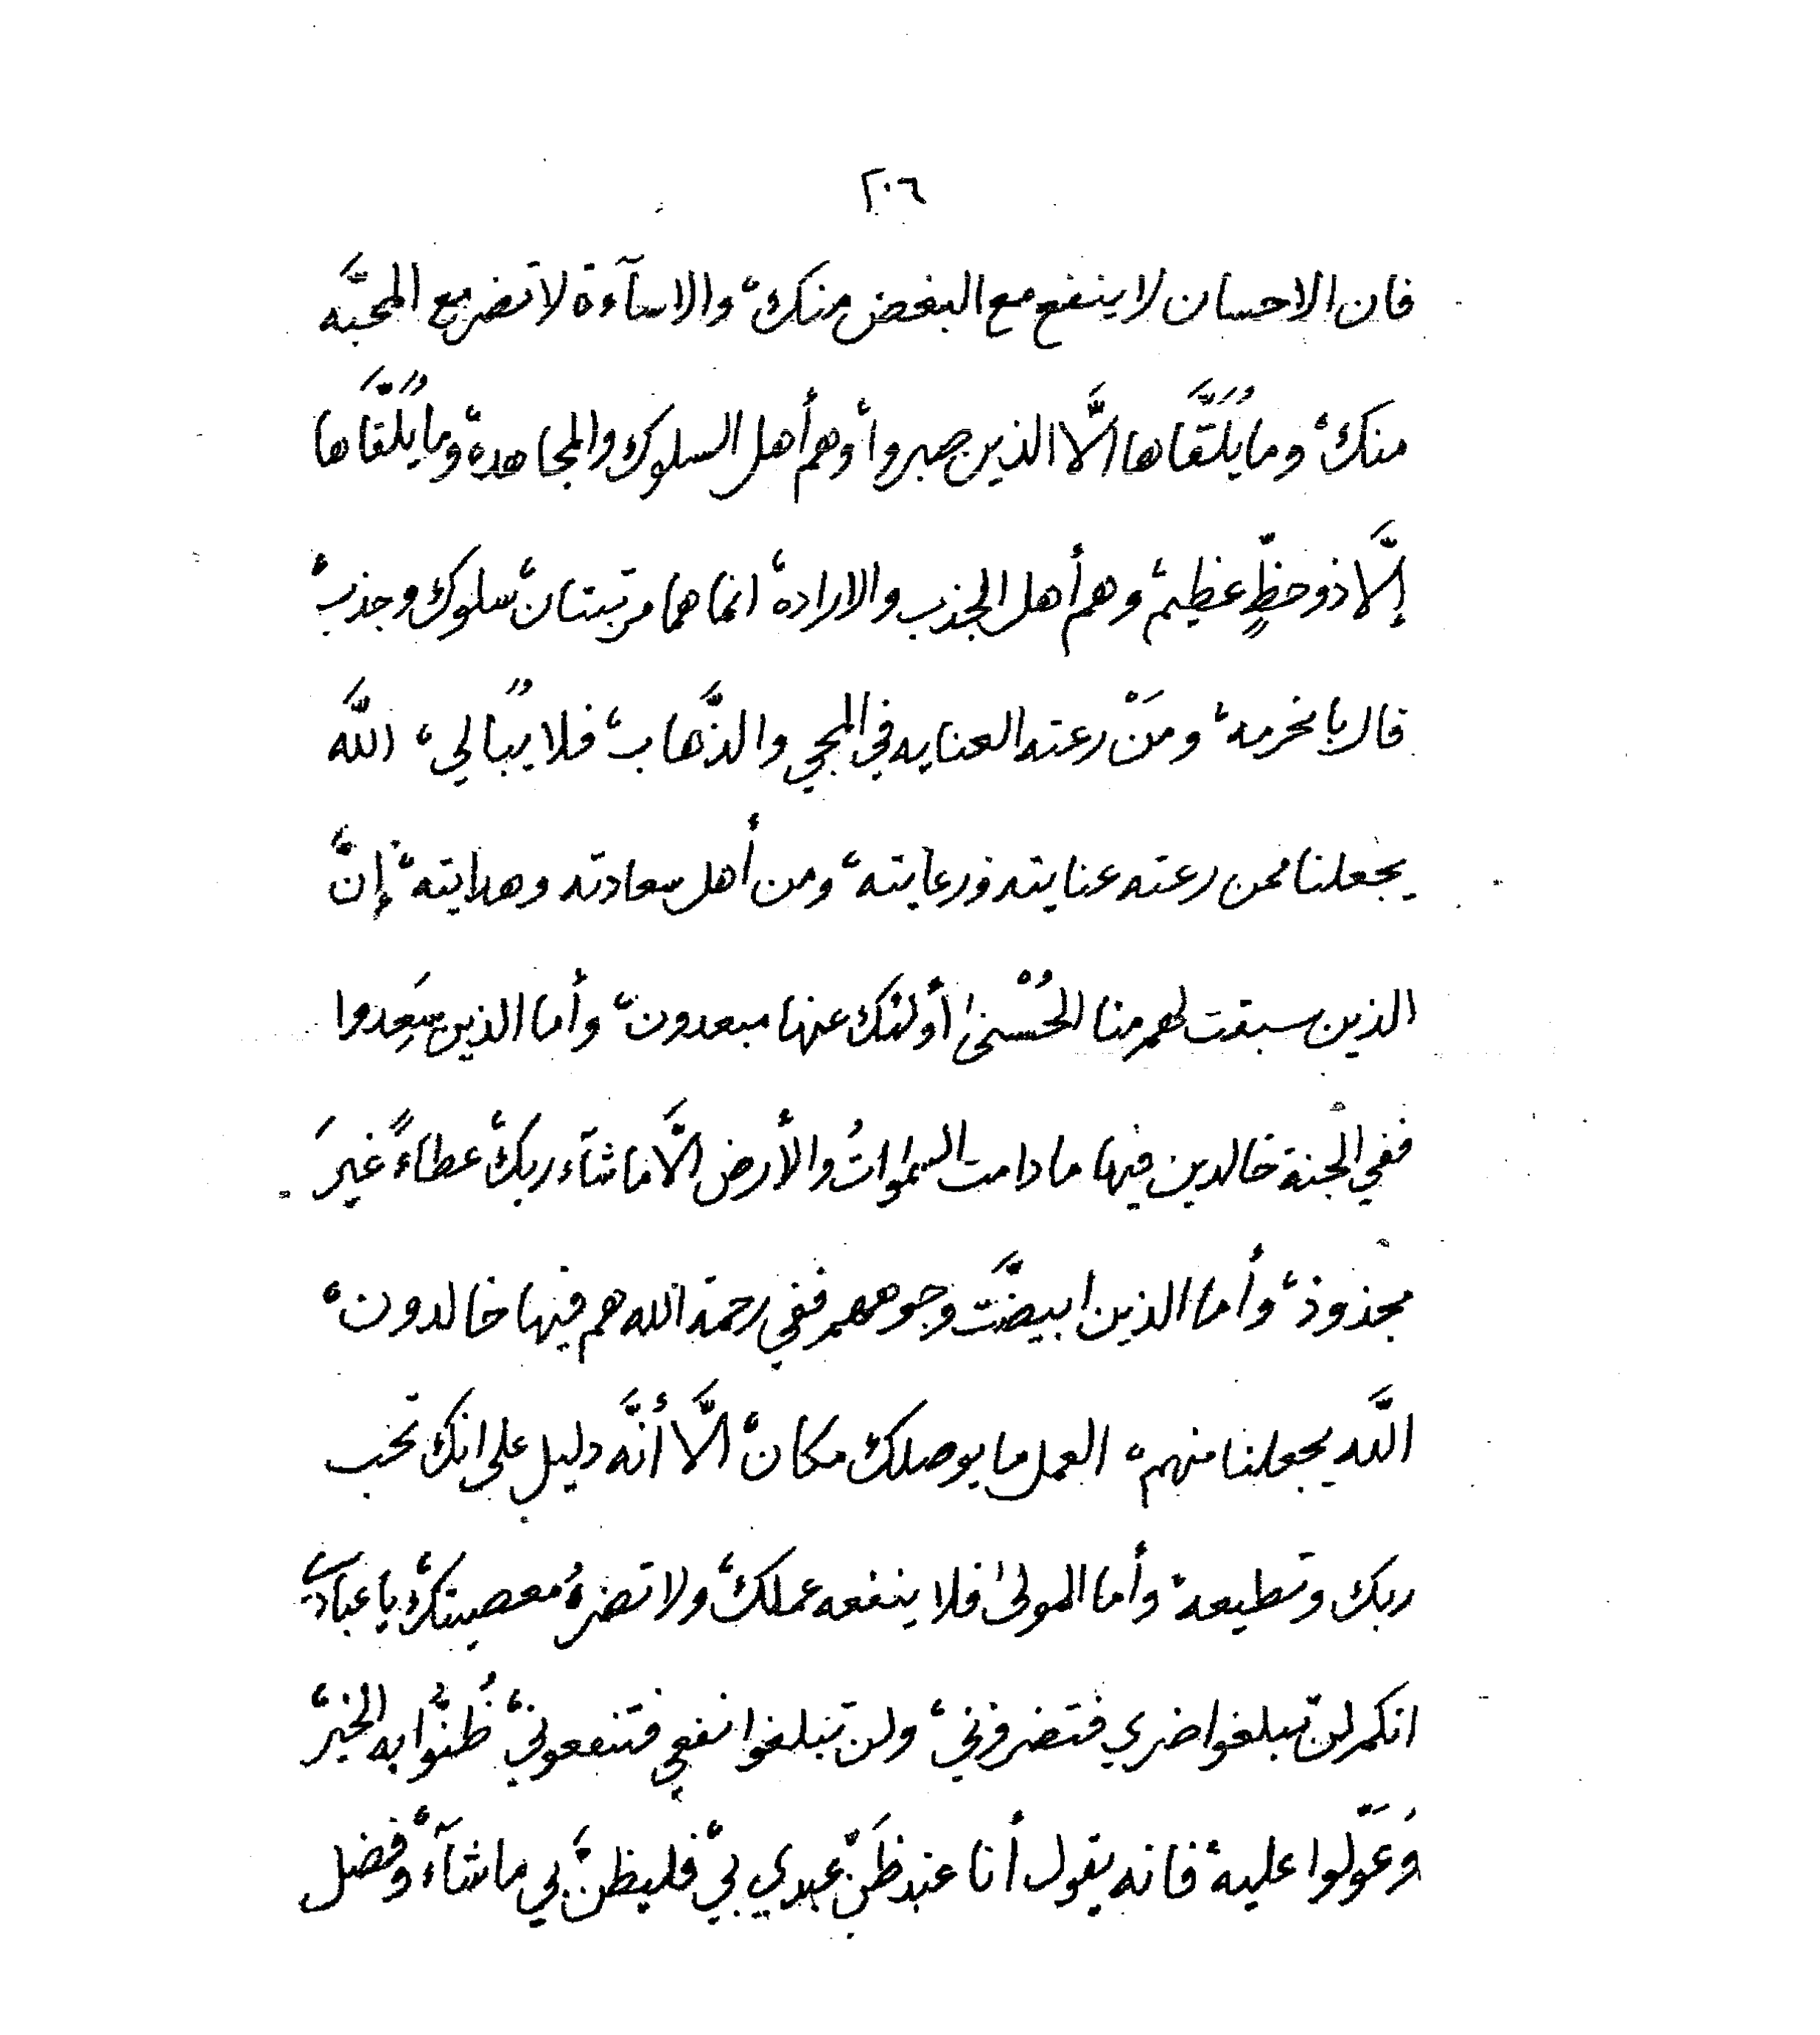 ٢٠٦
فان الاحسان لا ينفع مع البغض منك، والاسآءة لا تضر مع المحبَّه
منك، وما يُلَقَّاها الَّا الذين صبروا، وهم أهل السلوك والمجاهدة، وما يُلَقَّاها
إلَّا ذو حظٍّ عظيم، وهم أهل الجذب والاراده، انما هما مرتبتان، سلوك وجذب،
قال بامخرمه، ومَنْ رعته العنايه في المجي والذَّهاب، فلا يُبالي، اللَّه
يجعلنا ممن رعته عنايته ورعايته، ومن أهل سعادته وهدايته، إنَّ
الذين سبقت لهم منا الحُسْنىٰ أولئك عنها مبعدون، وأما الذين سَعِدوا
ففي الجنة خالدين فيها ما دامت السمٰواتُ والأرض الَّا ما شآء ربك، عطاءً غيرَ
مجذوذ، وأما الذين ابيضَّت وجوههم ففي رحمة الله هم فيها خالدون،
اللَّه يجعلنا منهم، العمل ما يوصلك مكان، الَّا أنَّه دليل على انك تحب
ربك وتطيعه، وأما المولىٰ فلا ينفعه عملك، ولا تضرهُ معصيتك، يا عبادي
انكم لن تبلغوا ضري فتضروني، ولن تبلغوا نفعي فتنفعوني، ظُنُّوا به الخير،
وَعَوّلوا عليه، فانه يقول أنا عند ظَنّ عبدي بي، فليظنَّ بي ما شآء، وفضل